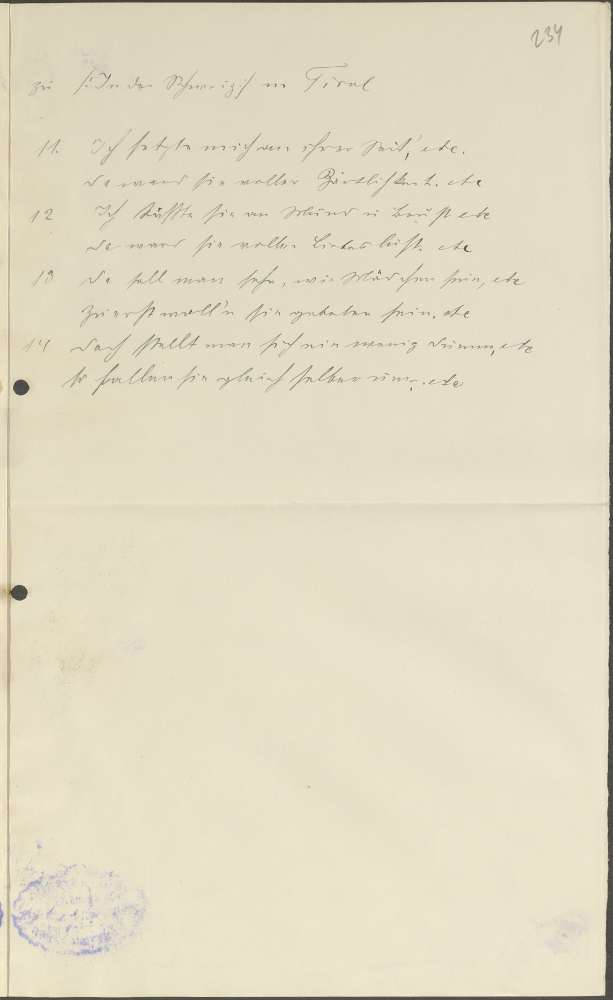 234
zu /: In der Schweiz :/ in Tirol
11. Ich setzte mich an ihrer Seit', etc.
da ward sie voller Zärtlichkeit. etc
12 Ich küsste sie an Mund u Brust etc
da ward sie voller Liebeslust. etc
13 Da soll man sehn, wie Mädchen sein, etc
Zu erst woll'n sie gebeten sein. etc
14 Doch stellt man sich ein wenig dumm, etc
so fallen sie gleich selber um. etc